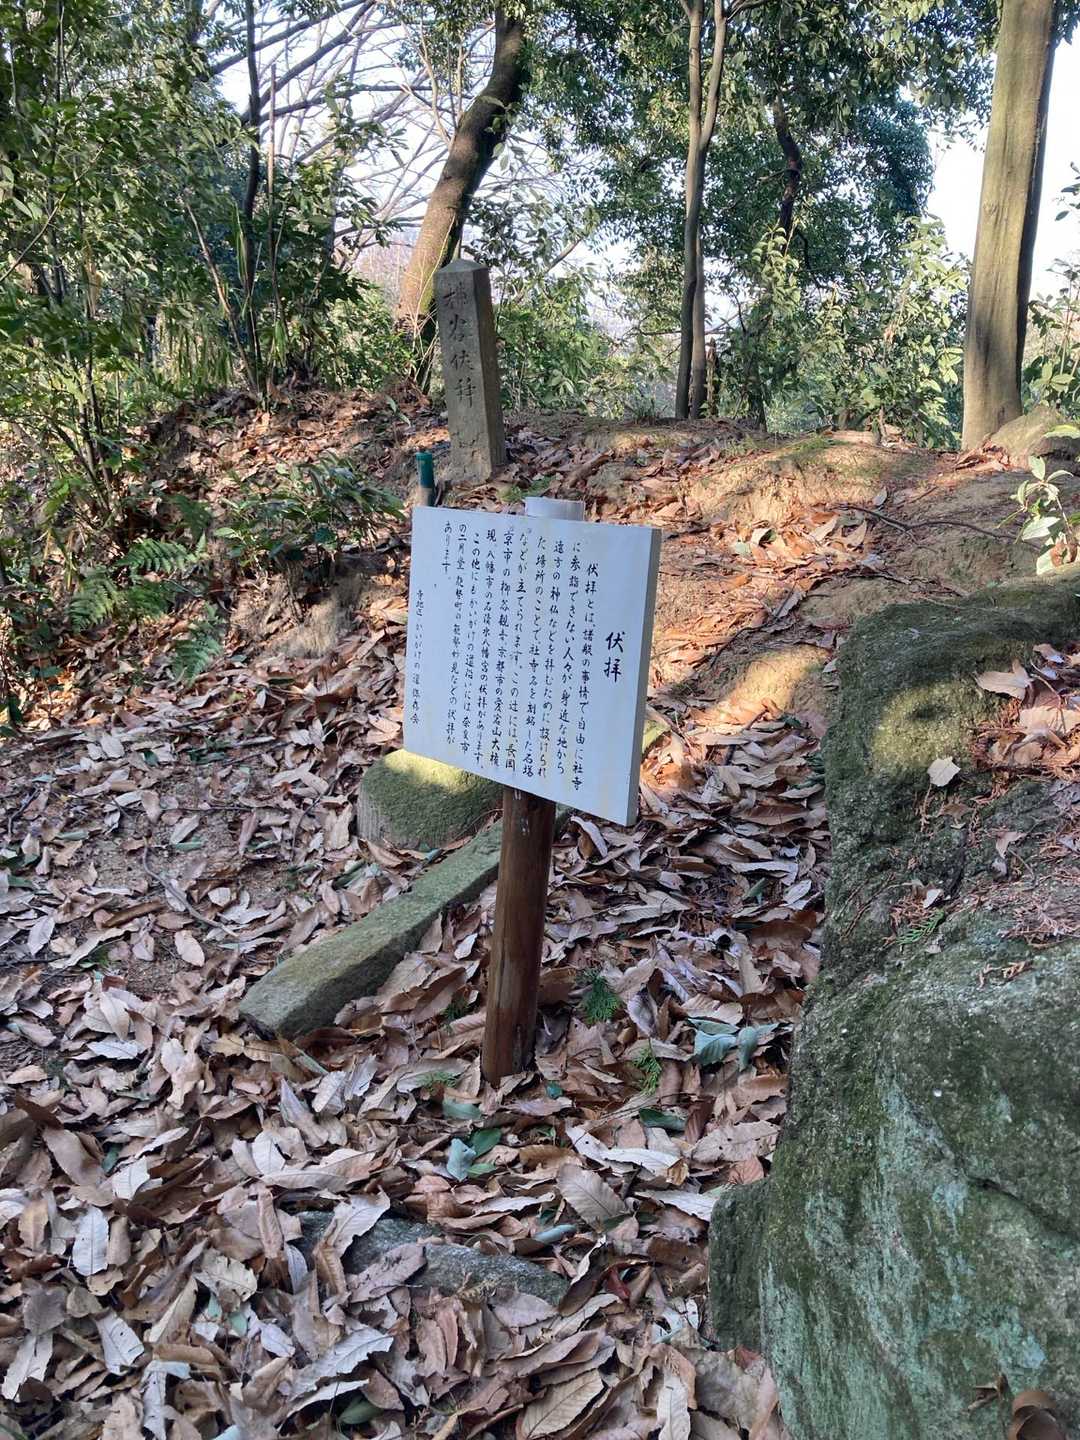 柳谷伏拝
伏拝
伏拝とは、諸般の事情で自由に社寺
に参詣できない人々が、身近な地から
遠方の神仏などを拝むために設けられ
た場所のことで、社寺名を刻銘した石塔
などが立てられます。この辻には、長岡
京市の柳谷観音、京都市の愛宕山大権
現、八幡市の石清水八幡宮の伏拝があります。
この他にもかいがけの道沿いには、奈良市
の二月堂、能勢町の能勢妙見などの伏拝が
あります。
寺地区 かいがけの道保存会